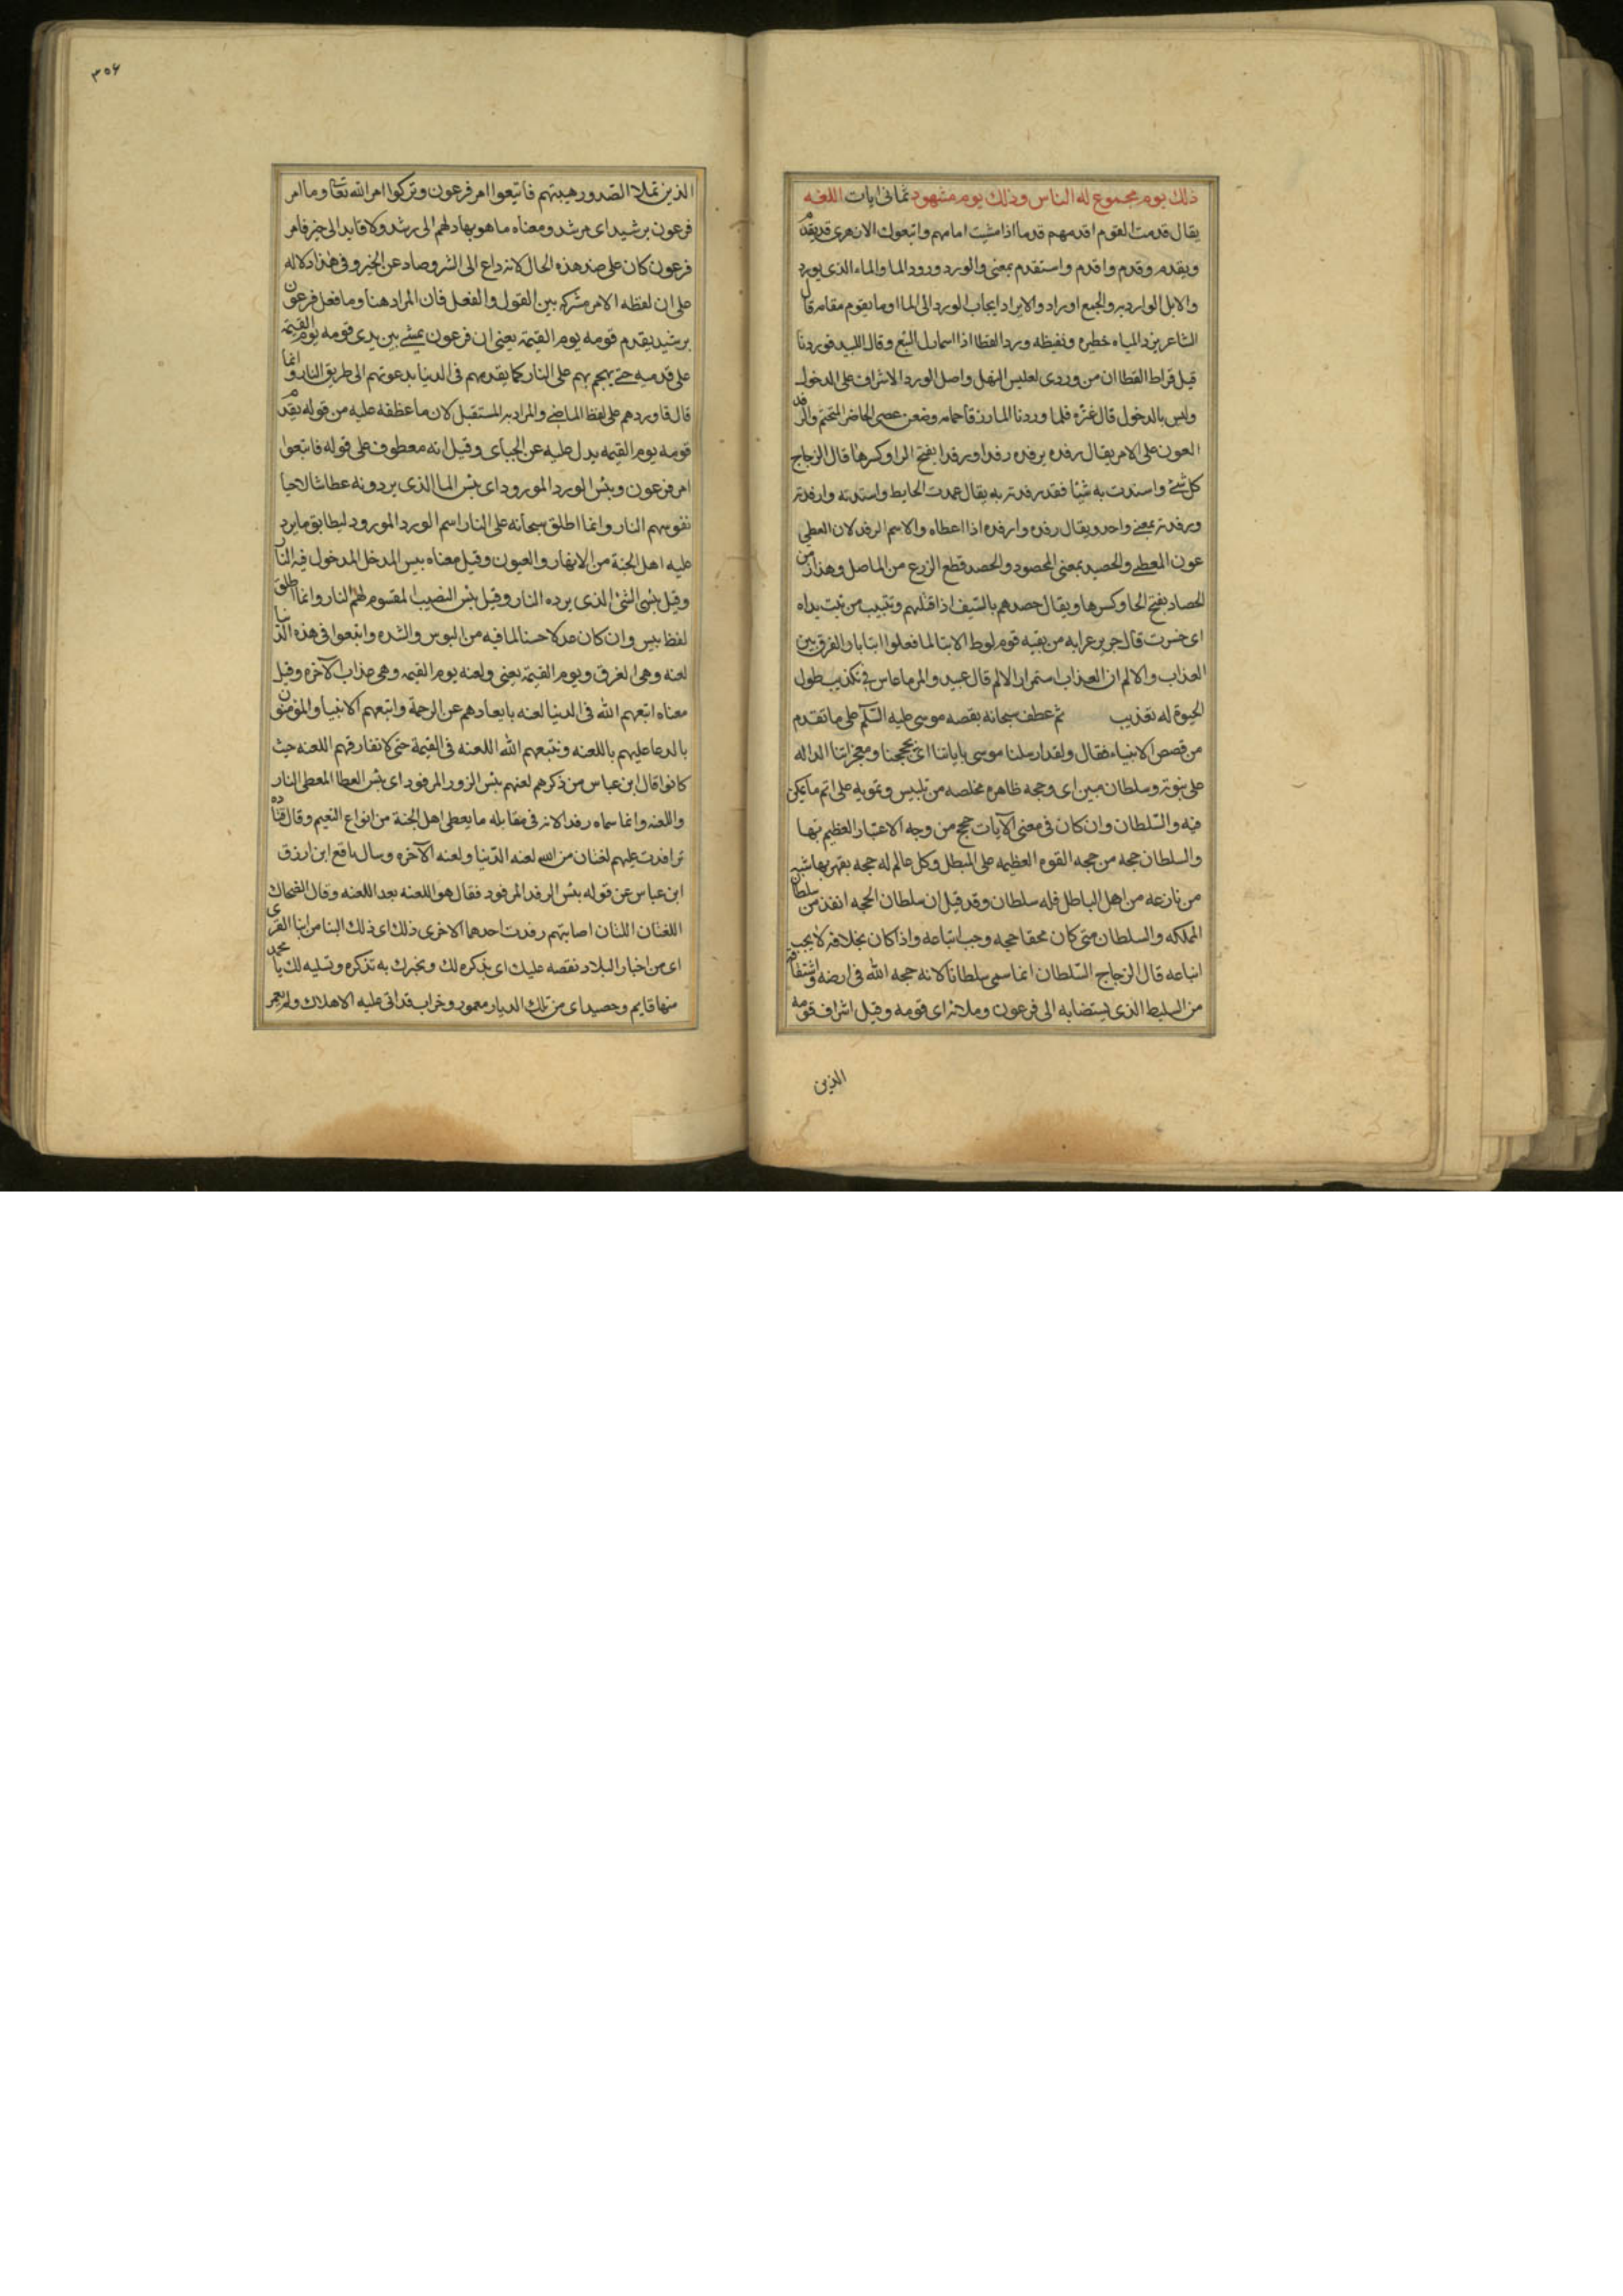 ذلك يوم مجموع له الناس وذلك يوم مشهود ثمانى ايات اللغه
يقال قدمت القوم اقدمهم قدما اذا مشيت امامهم واتبعوك الازهرى قد يقدم
ويقدم وقدم واقدم واستقدم بمعنى والورد ورود الما والماء الذى يورد
والابل الوارده والجمع اوراد والايراد ايجاب الورد الى الما او ما يقوم مقامه قال
الشاعر يرد المياه حطيره ونفيظه ورد القطا اذا اسمال التبع وقال لبيد فوردنا
قبل قراط القطا ان من وردى لعليس النهل واصل الورد الاشراف على الدخول
وليس بالدخول قال عنتره فلما وردنا الما زرقا جمامه وضعن عصى الحاضر المتخيم والرفد
العون على الامر يقال رفده يرفده رفدا ورفدا بفتح الرا وكسرها قال الزجاج
كل شئ واسندت به شيئا فقد رفدته به يقال عمدت الحايط واسندته وارفدته
ورفدته بمعنى واحد ويقال رفده وارفده اذا اعطاه والاسم الرفد لان العطى
عون المعطى والحصيد بمعنى المحصود والحصد قطع الزرع من الماصل وهذا زمن
الحصاد بفتح الحا وكسرها ويقال حصدهم بالسيف اذا قتلهم وتتبيب من تبت يداه
اى خسرت قال جرير عرابه من بقيه قوم لوط الا تبا لما فعلوا تبابا والفرق بين
العذاب والالم ان العذاب استمرار الالم قال عبيد والمر ما عاش فى تكذيب طول
الحيوة له تعذيب ثم عطف سبحانه بقصه موسى عليه السلم على ما تقدم
من قصص الانبياء فقال ولقد ارسلنا موسى باياتنا اى بحججنا ومعجزاتنا الداله
على نبوته وسلطان مبين اى وحجه ظاهره مخلصه من تلبيس وتمويه على اتم ما يمكن
فيه والسلطان وان كان فى معنى الآيات حجج من وجه الاعتبار العظيم بها
والسلطان حجه من جهه القوه العظيمه على المبطل وكل عالم له حجه يقهر بها شبه
من نازعه من اهل الباطل فله سلطان وقد قيل ان سلطان الحجه انفذ من سلطان
المملكه والسلطان متى كان محقا حجه وجب اتباعه واذا كان بخلافه لا يجب
اتباعه قال الزجاج السلطان انما سمى سلطانا لانه حجه الله فى ارضه واشتقاقه
من السليط الذى يستضا به الى فرعون وملائه اى قومه وقيل اشراف قومه
الذين
٣٥٦
الذين تملا الصدور هيبتهم فاتبعوا امر فرعون وتركوا امر الله تعا وما امر
فرعون برشيد اى مرشد ومعناه ما هو بهاد لهم الى رشد ولا قايد الى خير فامر
فرعون كان على ضد هذه الحال لانه داع الى الشر وصاد عن الخير وفى هذا دلاله
على ان لفظه الامر مشركه بين القول والفعل فان المراد هنا وما فعل فرعون
برشيد يقدم قومه يوم القيمة يعنى ان فرعون يمشى بين يدى قومه يوم القيمة
على قدميه حتى يهجم بهم على النار كما يقدمهم فى الدنيا يدعوتهم الى طريق النار وانما
قال فاوردهم على لفظ الماضى والمراد به المستقبل لان ما عطفه عليه من قوله يقدم
قومه يوم القيمه يدل عليه عن الجباى وقيل انه معطوف على قوله فاتبعوا
امر فرعون وبئس الورد المورود اى بئس الما الذى يردونه عطاشا لاحيا
نفوسهم النار وانما اطلق سبحانه على النار اسم الورد المورود ليطابق ما يرد
عليه اهل الجنة من الانهار والعيون وقيل معناه بيس المدخل المدخول فيه النار
وقيل بئس الشئ الذى يرده النار وقيل بئس النصيب المقسوم لهم النار وانما اطلق
لفظ بيس وان كان عدلا حسنا لما فيه من البوس والشده واتبعوا فى هذه الدنيا
لعنه وهى الغرق ويوم القيمة يعنى ولعنه يوم القيمه وهى عذاب الآخره وقيل
معناه اتبعهم الله فى الدنيا لعنه بابعادهم عن الرحمة واتبعهم الانبيا والمؤمنون
بالدعا عليهم باللعنه ونتبعهم الله اللعنه فى القيمة حتى لا تفارقهم اللعنه حيث
كانوا قال ابن عباس من ذكرهم لعنهم بئس الرفد المرفود اى بئس العطا المعطى النار
واللعنه وانما سماه رفدا لانه فى مقابله ما يعطى اهل الجنة من انواع النعيم وقال قتاده
ترافدت عليهم لعنتان من الله لعنه الدنيا ولعنه الآخره وسال نافع ابن ازرق
ابن عباس عن قوله بئس الرفد المرفود فقال هو اللعنه بعد اللعنه وقال الضحاك
اللعنتان اللتان اصابتهم رفدت احدهما الاخرى ذلك اى ذلك النبا من انبا القرى
اى من اخبار البلاد نقصه عليك اى نذكره لك ونخبرك به تذكره وتسليه لك يا محمد
منها قايم وحصيد اى من تلك الديار معمور وخراب قد اتى عليه الاهلاك ولم يعمر